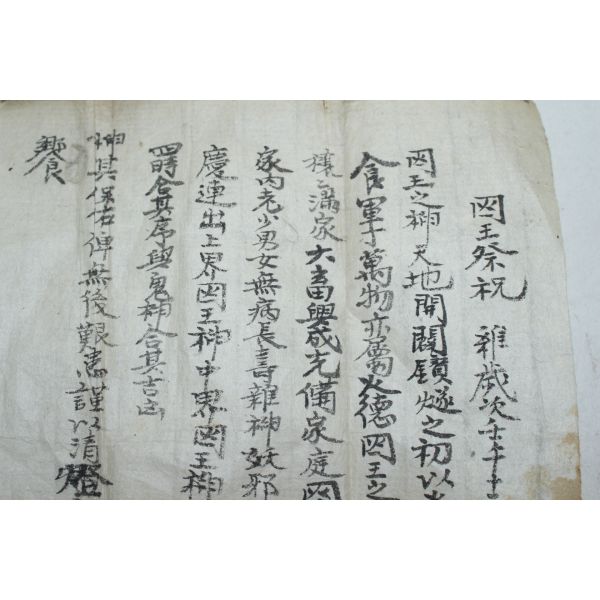 囚王祭祝 維歲次壬午十
囚王之神天地開闢鑽燧之初以
食軍萬物亦屬火德囚王之
穰〻滿家六畜興成先備家庭囚
家內老少男女無病長壽雜神妖邪
慶連出上界囚王神中界囚王神
四時合其序與鬼神合其吉凶
神其保佑俾無後艱憲謹以清燈
饗